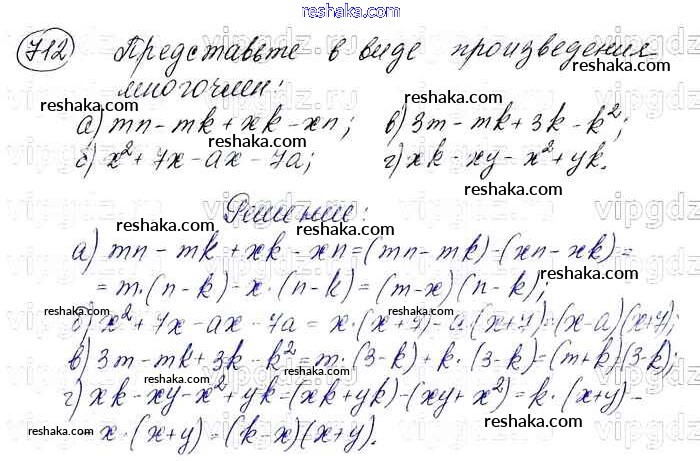 reshaka.com
712 Представьте в виде произведения
многочлен:
reshaka.com
reshaka.com
reshaka.com
а) mn - mk + xk - xn; в) 3m - mk + 3k - k²;
б) x² + 7x - ax - 7a; г) xk - xy - x² + yk.
reshaka.com
reshaka.com
Решение:
reshaka.com
а) mn - mk + xk - xn = (mn - mk) - (xn - xk) =
reshaka.com
= m·(n - k) - x·(n - k) = (m - x)(n - k);
reshaka.com
б) x² + 7x - ax - 7a = x·(x + 7) - a·(x + 7) = (x - a)(x + 7);
reshaka.com
в) 3m - mk + 3k - k² = m·(3 - k) + k·(3 - k) = (m + k)(3 - k);
reshaka.com
reshaka.com
г) xk - xy - x² + yk = (xk + yk) - (xy + x²) = k·(x + y) -
reshaka.com
reshaka.com
- x·(x + y) = (k - x)(x + y).
reshaka.com